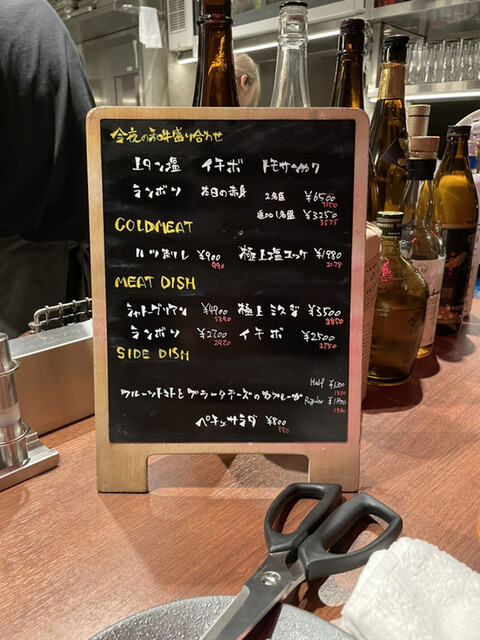 今夜の和牛盛り合わせ
上タン塩 イチボ トモサンカク
ランボソ 本日の赤身 2名盛 ¥6500
7150
追加1名盛 ¥3250
3575
COLDMEAT
ハツ刺し ¥900 極上塩ユッケ ¥1980
990 2178
MEAT DISH
シャトーブリアン ¥4900 極上ミスジ ¥3500
5390 3850
ランボソ ¥2700 イチボ ¥2500
2970 2750
SIDE DISH
Half ¥1200
フルーツトマトとブラータチーズのカプレーゼ Regular ¥1800
1980
ペキンサラダ ¥800
880